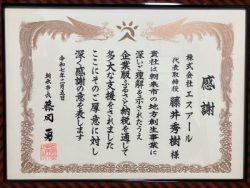 感謝
株式会社エスアール
代表取締役 藤井秀樹 様
貴社は朝来市の地方創生事業に
深いご理解を示されたうえ
企業版ふるさと納税を通じて
多大な支援をされました
ここにそのご厚意に対し
深く感謝の意を表します
令和七年二月五日
朝来市長 藤岡勇